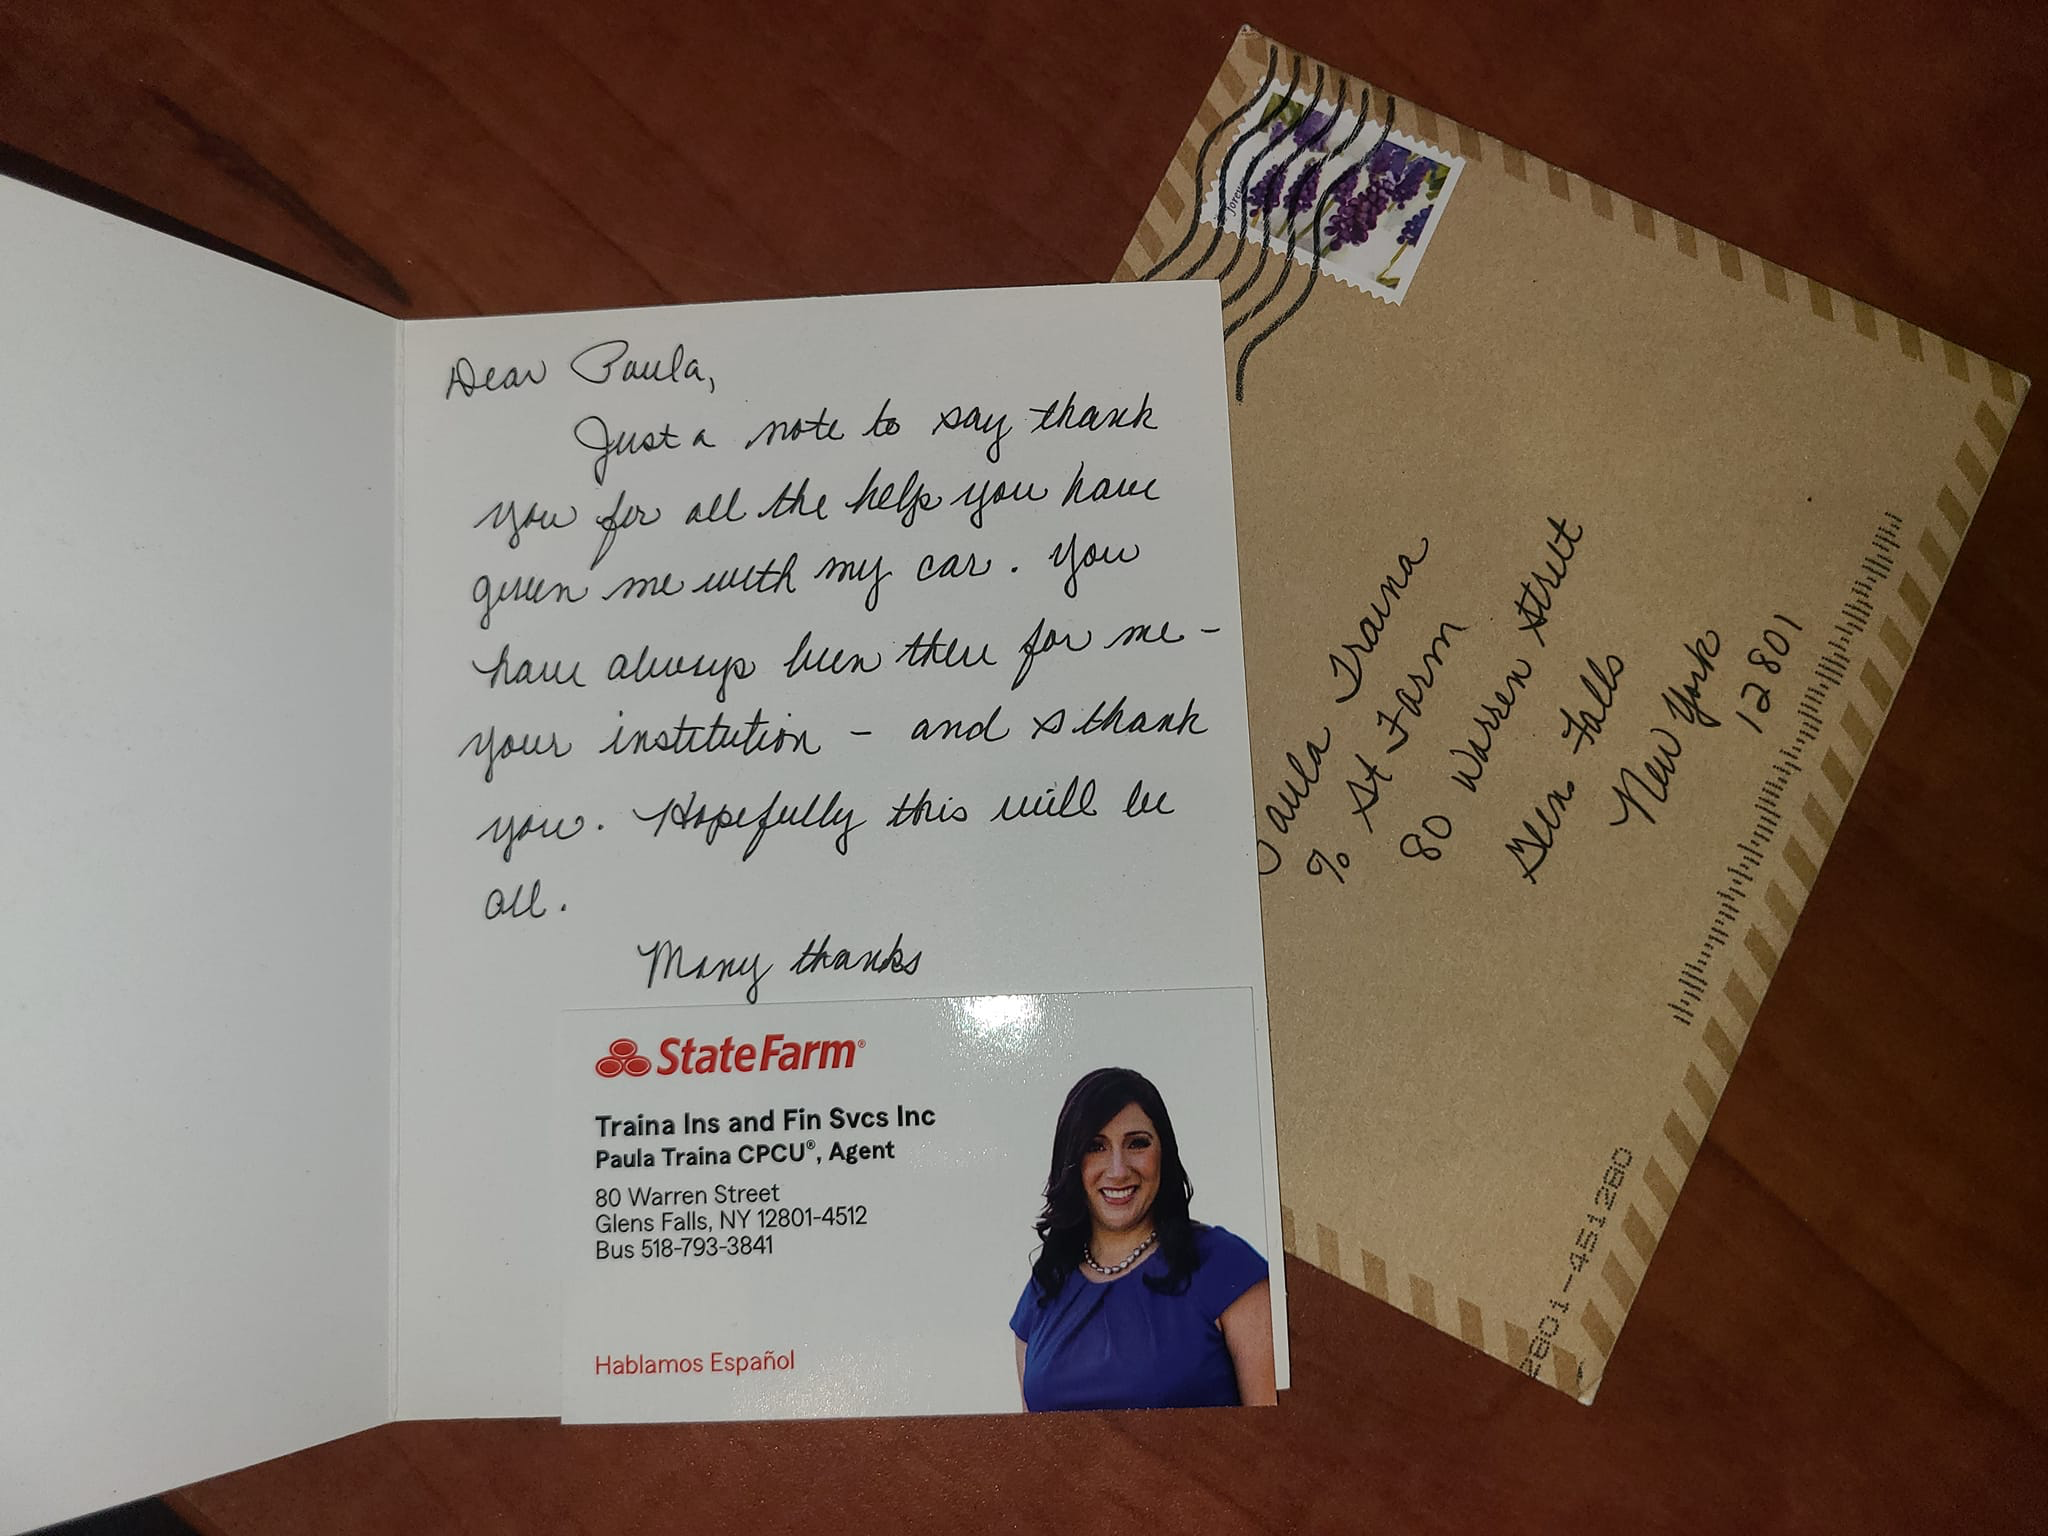 Dear Paula,
Just a note to say thank
you for all the help you have
given me with my car. You
have always been there for me -
your institution - and I thank
you. Hopefully this will be
all.
Many thanks
StateFarm®
Traina Ins and Fin Svcs Inc
Paula Traina CPCU®, Agent
80 Warren Street
Glens Falls, NY 12801-4512
Bus 518-793-3841
Hablamos Español
forever
Paula Traina
% St Farm
80 Warren Street
Glen Falls
New York
12801
2801-451280